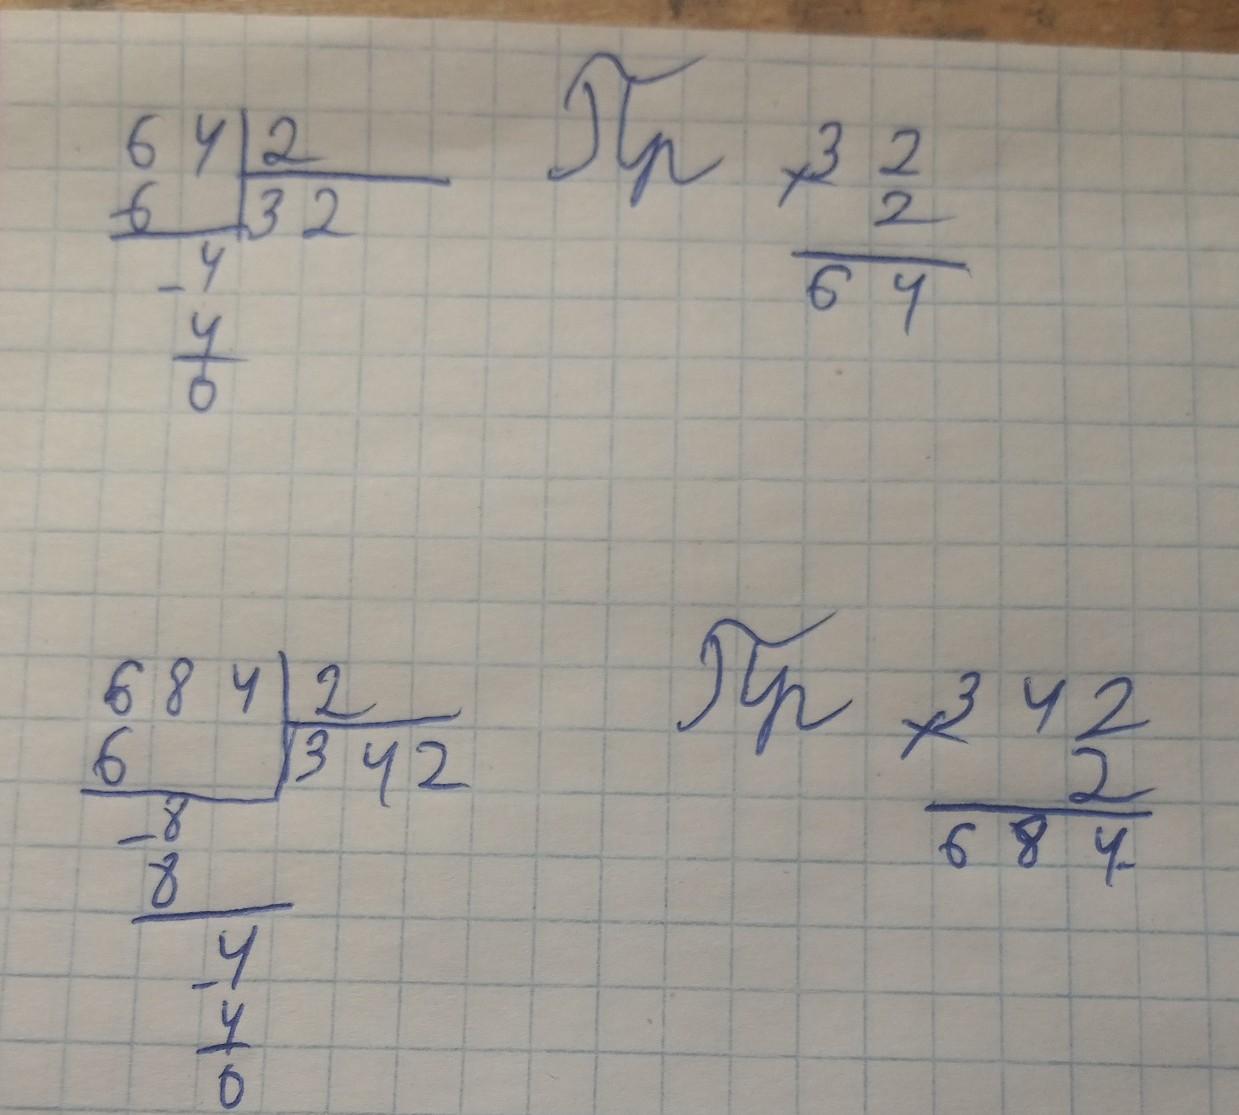 64 2
-6 32
-4
4
0
Пр
×32
2
64
684 2
6 342
-8
8
-4
4
0
Пр
×342
2
684